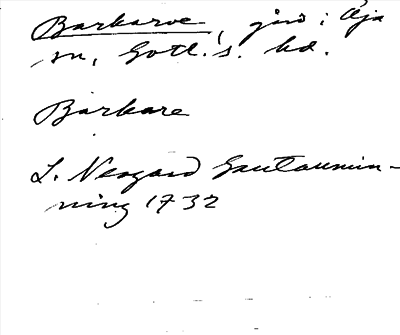 Barbarve, gård i Öja
sn, Gotl:s. hd.
Barbare
L. Neogard Gautaumin-
ning 1732